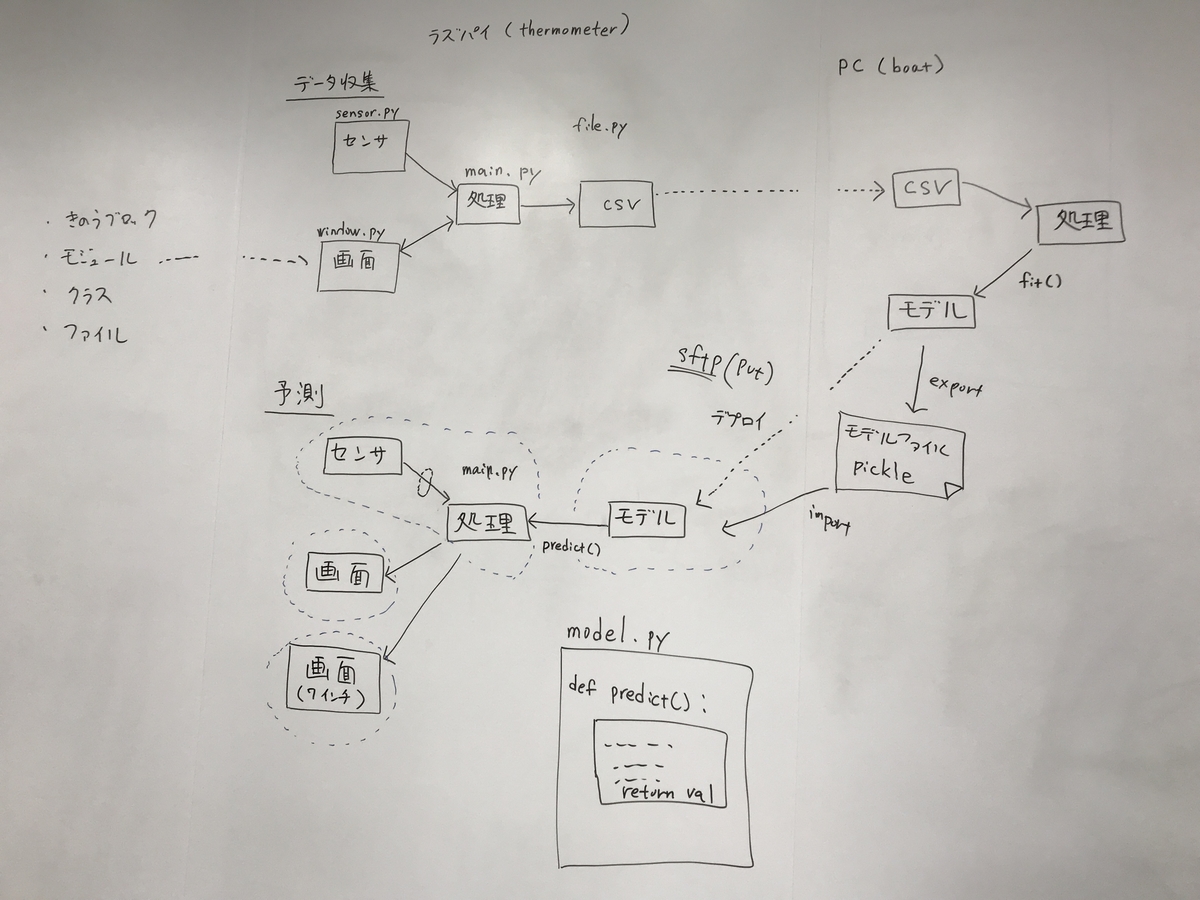 ラズパイ (thermometer)
PC (boat)
データ収集
sensor.py
センサ
file.py
main.py
処理
CSV
window.py
画面
CSV
処理
fit()
モデル
export
モデルファイル
pickle
import
・きのうブロック
・モジュール
・クラス
・ファイル
sftp (put)
デプロイ
予測
センサ
main.py
処理
モデル
predict()
画面
画面
(7インチ)
model.py
def predict():
return val